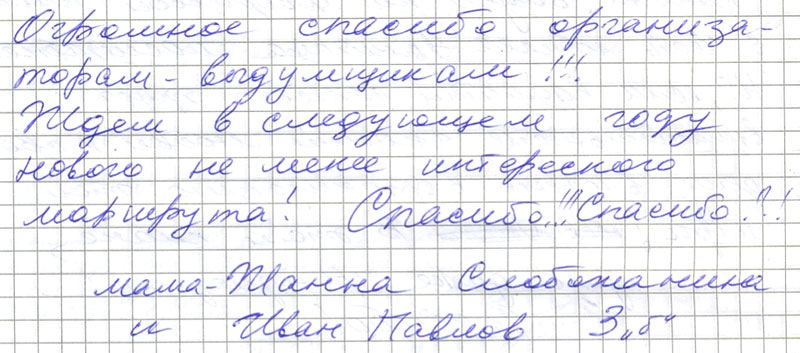 Огромное спасибо организа-
торам-выдумщикам!!!
Ждем в следующем году
нового не менее интересного
маршрута! Спасибо!!! Спасибо!!!
мама-Жанна Слобожанина
и Иван Павлов 3 „б“